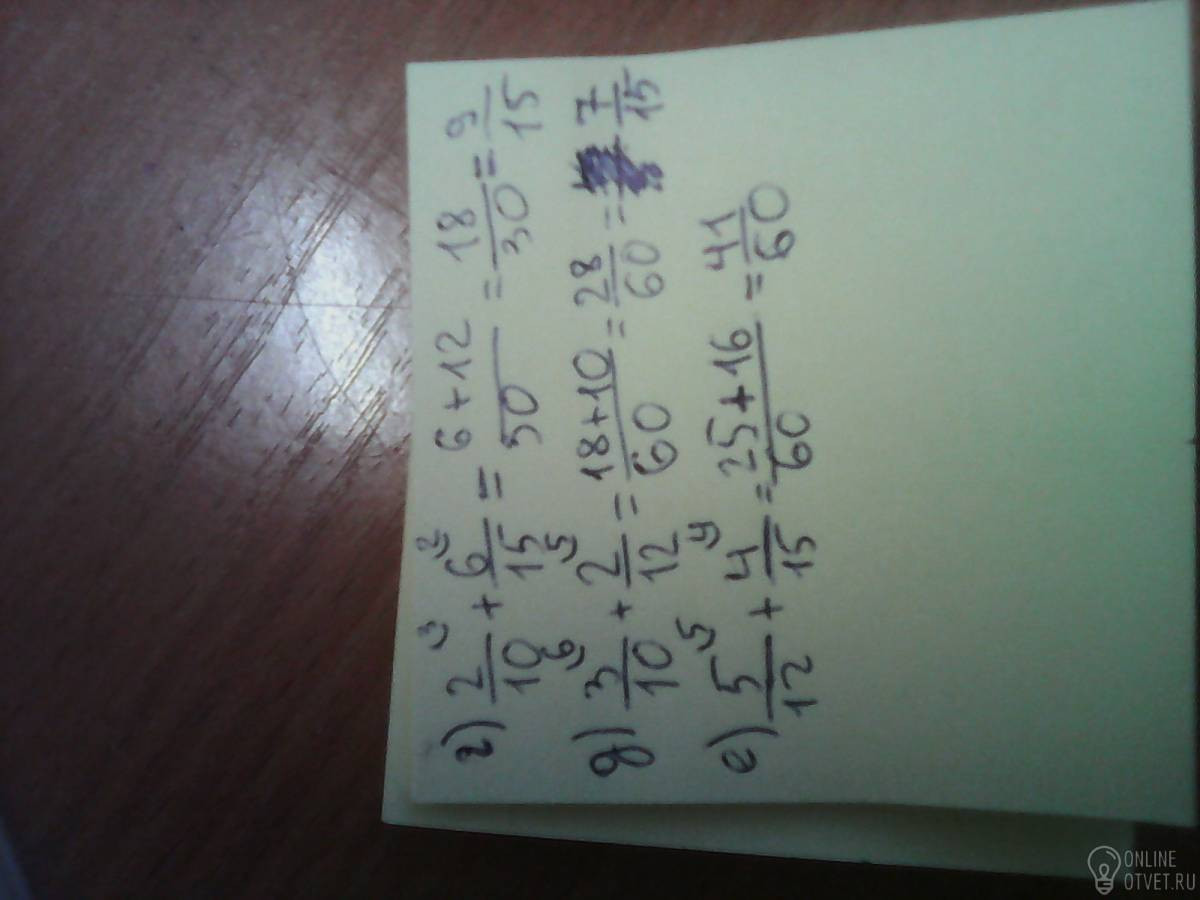 г) 2/10 ³ + 6/15 ² = 6+12/30 = 18/30 = 9/15
д) 3/10 ⁶ + 2/12 ⁵ = 18+10/60 = 28/60 = 7/15
е) 5/12 ⁵ + 4/15 ⁴ = 25+16/60 = 41/60
ONLINE
OTVET.RU